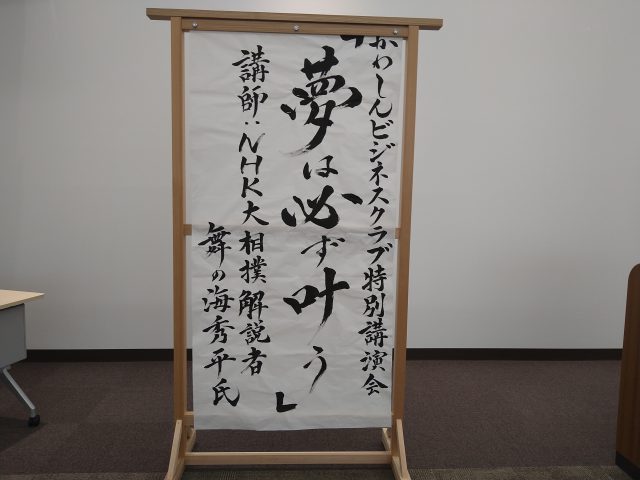 かわしんビジネスクラブ特別講演会
「夢は必ず叶う」
講師:NHK大相撲解説者
舞の海秀平氏